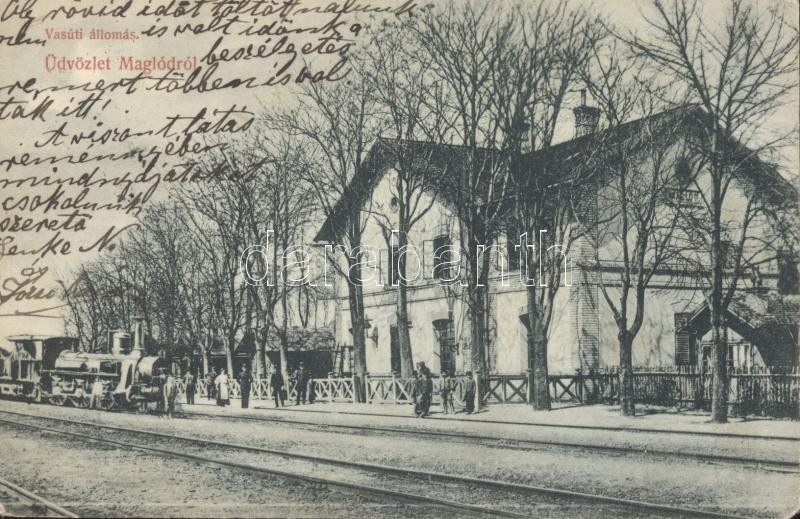 Oly rövid időt töltött nálunk
nem is volt időnk a
beszélgetés
remert többen is val
tak itt!
A viszontlátás
reményében
mindnyájatokat
csokolunk
szerető
Lenke N.
Vasúti állomás.
Üdvözlet Maglódról
darabanth